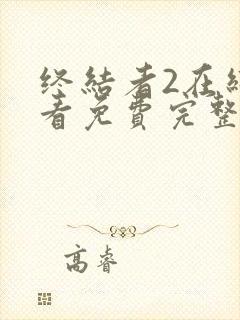 终结者2在
看免费完整
高睿